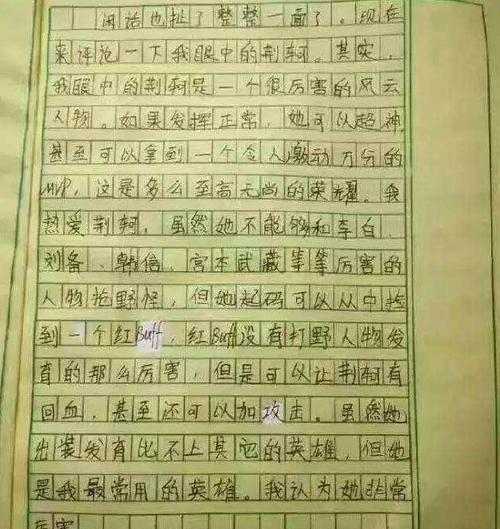 闲话也扯了整整一面了。现在
来评论一下我眼中的荆轲。其实，
我眼中的荆轲是一个很厉害的风云
人物。如果发挥正常，她可以超神
甚至可以拿到一个令人激动万分的
MVP，这是多么至高无尚的荣耀。我
热爱荆轲，虽然她不能够和李白、
刘备、韩信、宫本武藏等等厉害的
人物抢野怪，但她起码可以从中捡
到一个红Buff，红Buff没有打野人物发
育的那么厉害，但是可以让荆轲有
回血，甚至还可以加攻击。虽然她
出装发育比不上其它的英雄，但她
是我最常用的英雄。我认为她非常
厉害